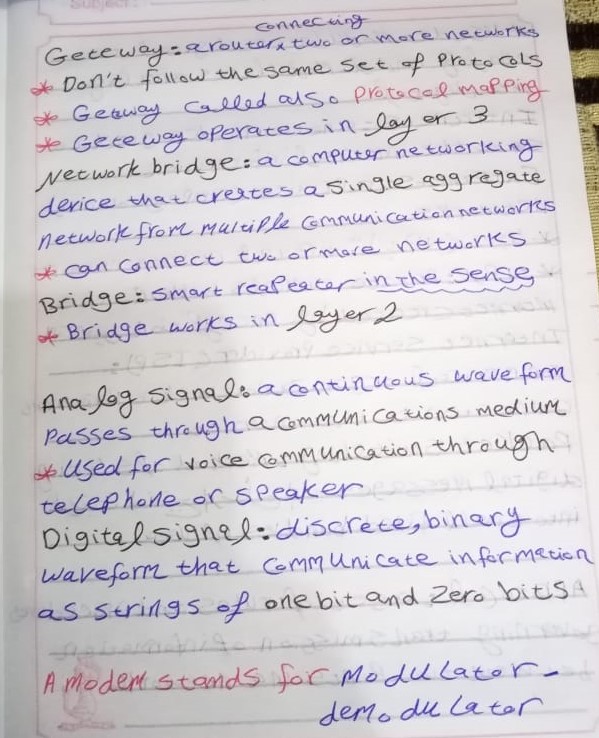 Subject:
connecting
Geteway: a router x two or more networks
* Don't follow the same set of Protocols
* Geteway called also protocal mapping
* Geteway operates in layer 3
Network bridge: a computer networking
device that creates a single aggregate
network from multiple communication networks
* can connect two or more networks
Bridge: smart reapeater in the sense
* Bridge works in layer 2
Analog signal: a continuous wave form
Passes through a communications medium
* Used for voice communication through
telephone or speaker
Digital signal: discrete, binary
waveform that communicate information
as strings of one bit and zero bits
A modem stands for Modulator-
demodulator